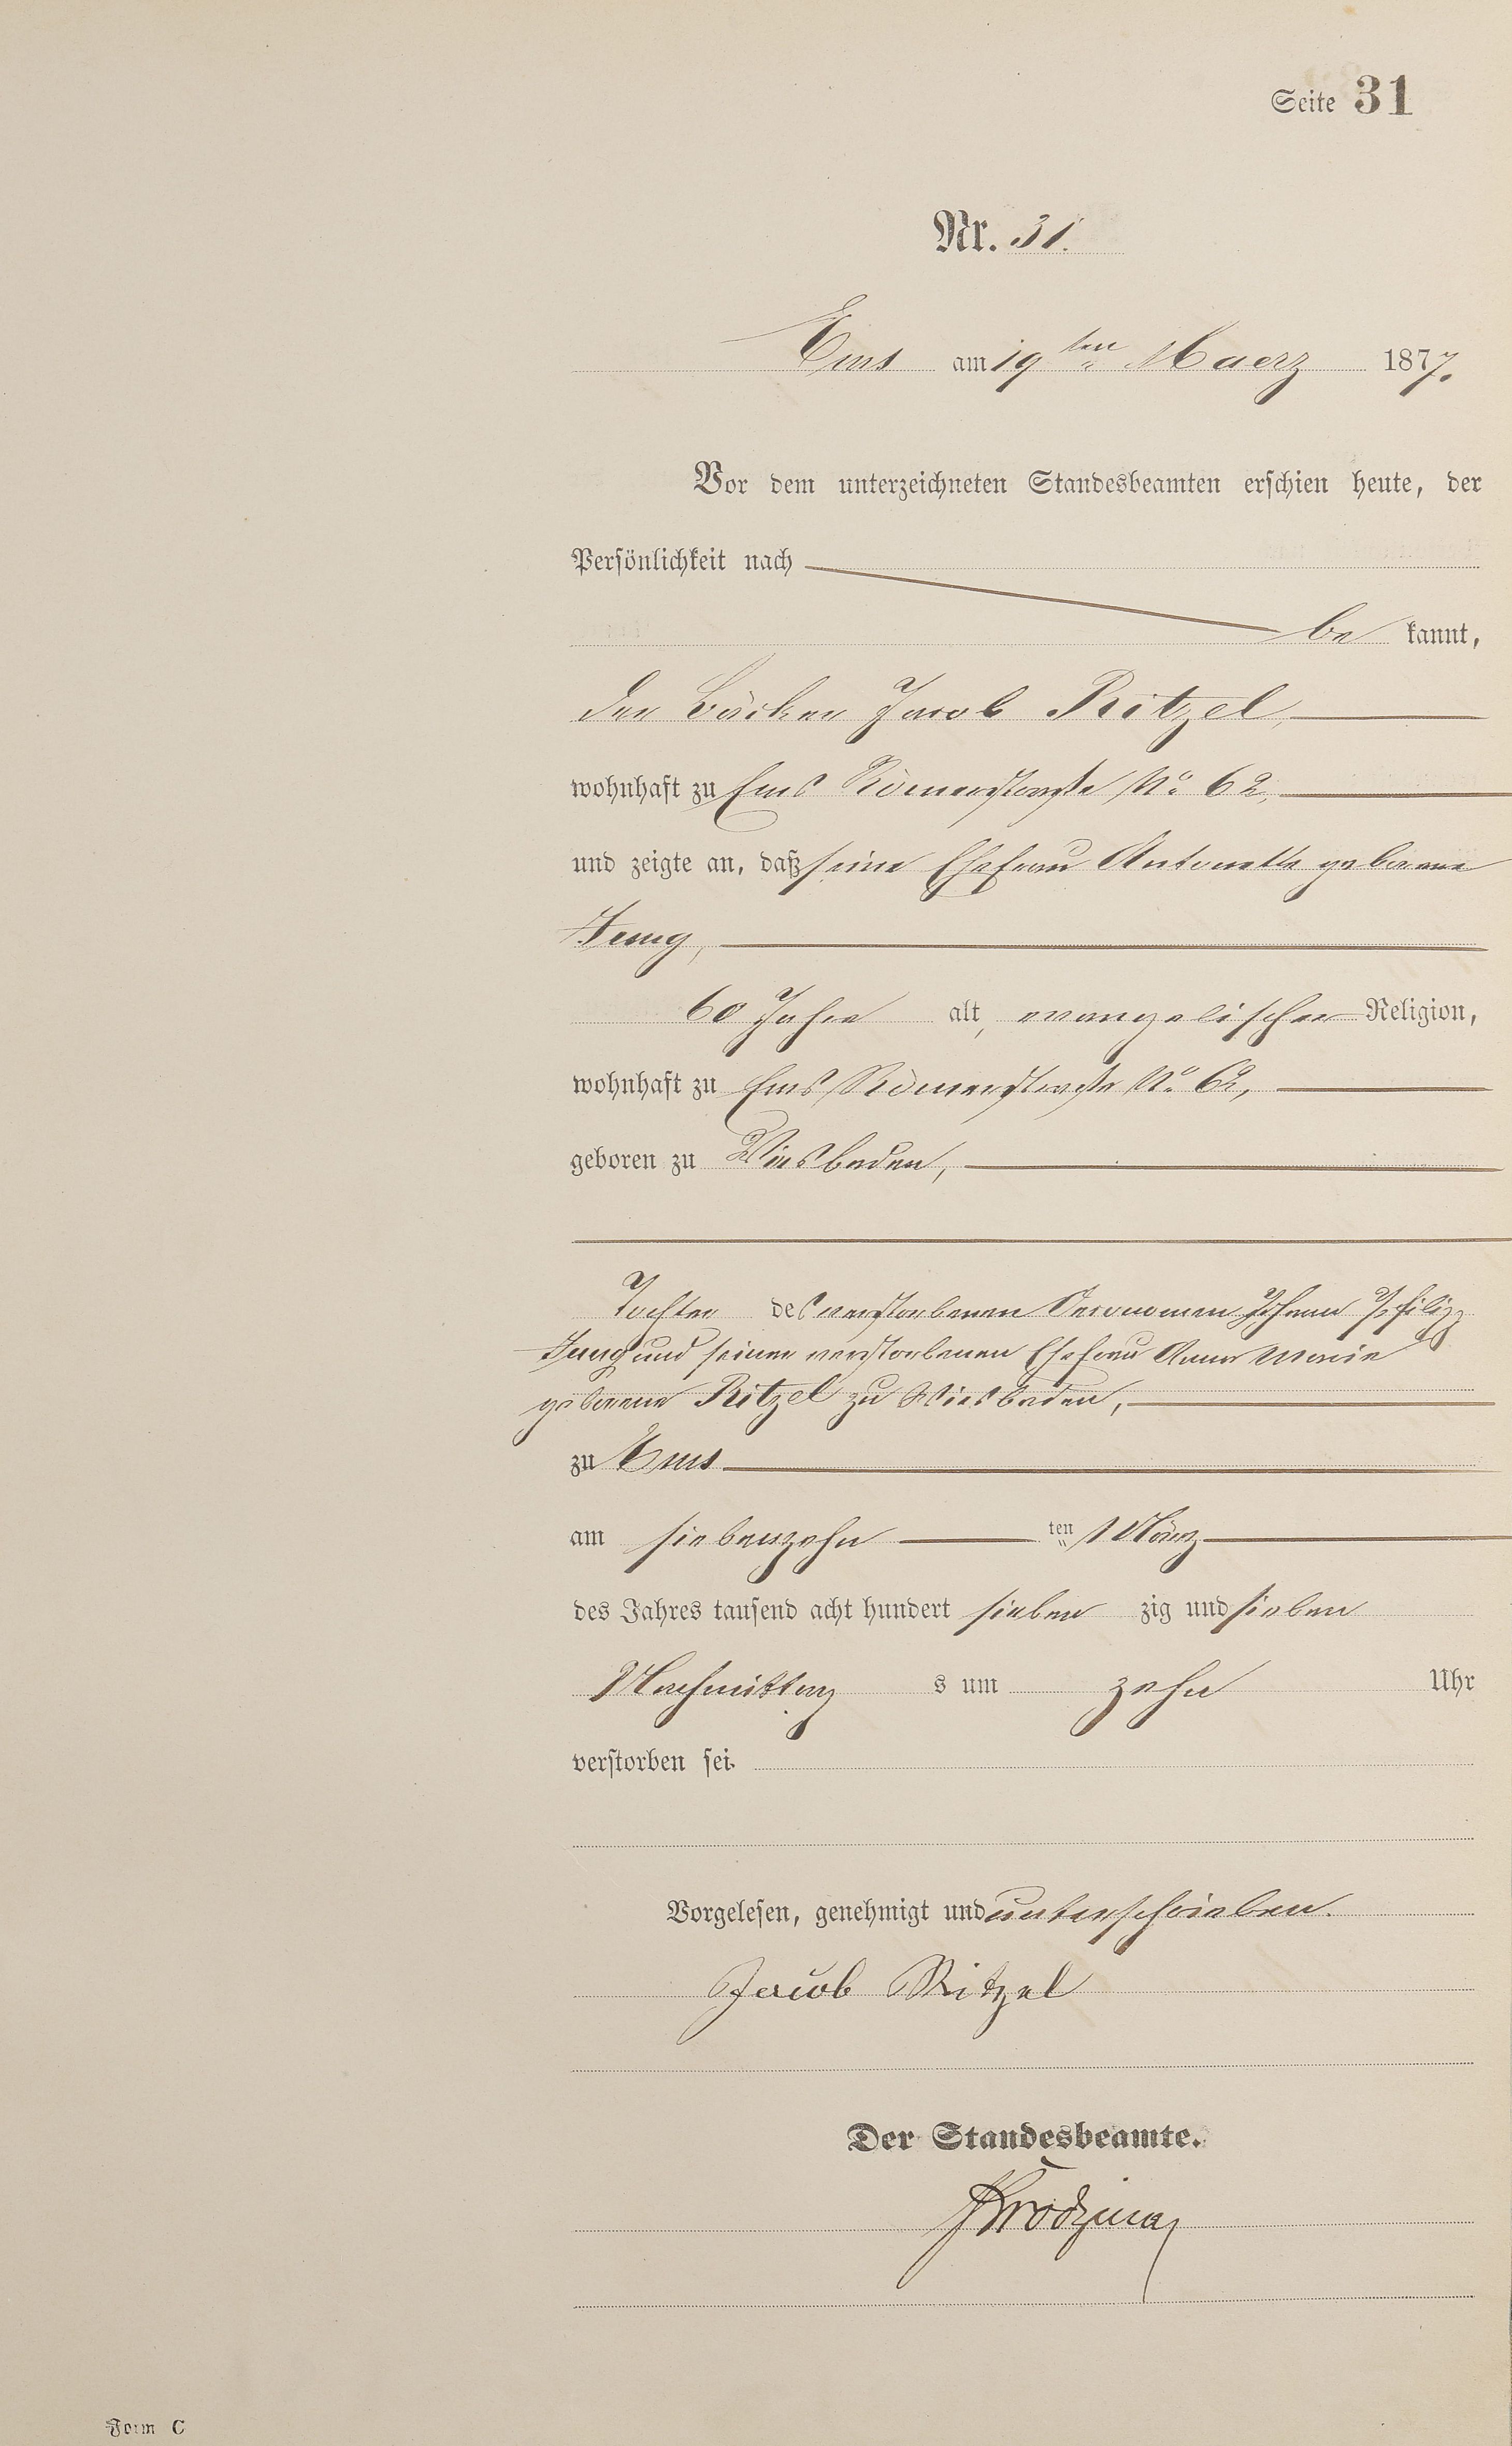 Seite 31
Nr. 31.
Ems am 19ten Maerz 1877.
Vor dem unterzeichneten Standesbeamten erschien heute, der
Persönlichkeit nach
be kannt,
der Bäcker Jacob Ritzel,
wohnhaft zu Ems Römerstraße No 62,
und zeigte an, daß seine Ehefrau Antonette geborene
Jung,
60 Jahre alt, evangelischer Religion,
wohnhaft zu Ems Römerstraße No 62,
geboren zu Wiesbaden,
Tochter des verstorbenen Oeconomen Johann Philipp
Jung und seiner verstorbenen Ehefrau Anna Marie
geborene Ritzel zu Wiesbaden,
zu Ems
am siebenzehn ten März
des Jahres tausend acht hundert sieben zig und sieben
Nachmittag s um zehn Uhr
verstorben sei.
Vorgelesen, genehmigt und unterschrieben.
Jacob Ritzel
Der Standesbeamte.
Form C